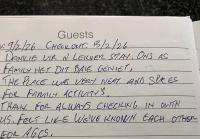 Guests
9/2/26 CHECKOUT 13/2/26
DANKIE VIR 'N LEKKER STAY. ONS AS
FAMILY HET DIT BAIE GENIET.
THE PLACE WAS VERY NEAT AND
FOR FAMILY ACTIVITY'S.
THANX FOR ALWAYS CHECKING IN WITH
US. FELT LIKE WE'VE KNOWN EACH OTHER
FOR AGES.